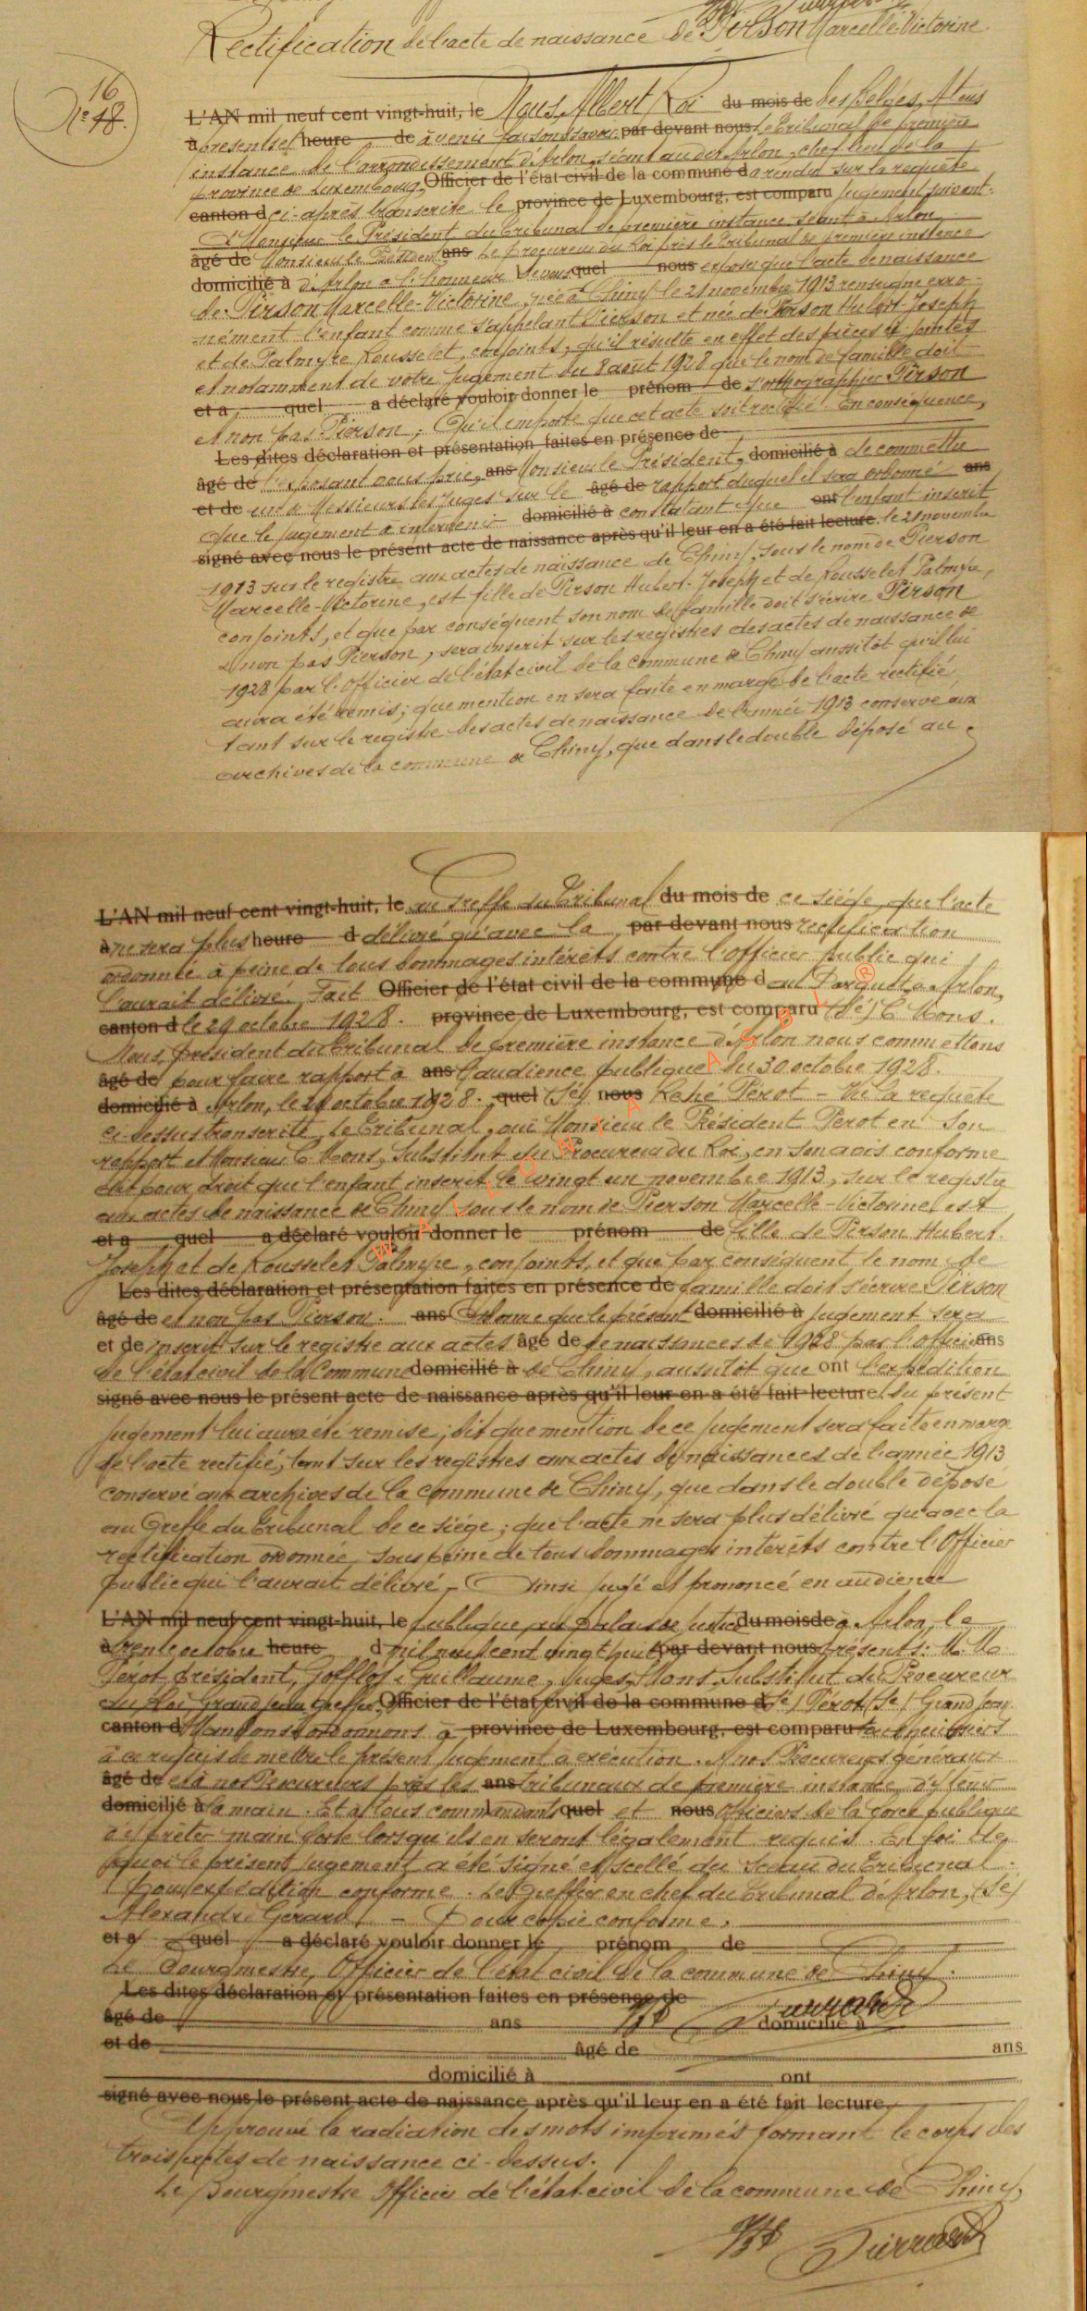 Rectification de l'acte de naissance de Pirson Marcelle-Victorine.
16
N° 18.
L'AN mil neuf cent vingt-huit, le Nous, Albert, Roi du mois de des Belges, A tous
à présents et heure de à venir faisons savoir par devant nous Le Tribunal de première
instance de l'arrondissement d'Arlon, séant au dit Arlon, chef-lieu de la
province de Luxembourg, Officier de l'état civil de la commune d a rendu sur la requête
canton d ci-après transcrite le province de Luxembourg, est comparu jugement suivant:
A Monsieur le Président du Tribunal de première instance séant à Arlon,
âgé de Monsieur le Président ans Le Procureur du Roi près le Tribunal de première instance
domicilié à d'Arlon a l'honneur de vous quel nous exposer que l'acte de naissance
de Pirson Marcelle-Victorine, née à Chiny le 21 novembre 1913 renseigne erro-
nément l'enfant comme s'appelant Pierson et née de Pirson Hubert-Joseph
et de Palmyre Rousselet, conjoints; qu'il résulte en effet des pièces ci jointes
et notamment de votre jugement du 8 août 1928 que le nom de famille doit
et a quel a déclaré vouloir donner le prénom de s'orthographier Pirson
et non pas Pierson; Qu'il importe que cet acte soit rectifié. En conséquence,
Les dites déclaration et présentation faites en présence de
âgé de l'exposant vous prie, ans Monsieur le Président, domicilié à de commettre
et de un de Messieurs les Juges sur le âgé de rapport duquel il sera ordonné ans
que le jugement à intervenir domicilié à constatant que ont l'enfant inscrit
signé avec nous le présent acte de naissance après qu'il leur en a été fait lecture. le 21 novembre
1913 sur le registre aux actes de naissance de Chiny, sous le nom de Pierson
Marcelle-Victorine, est fille de Pirson Hubert-Joseph et de Rousselet Palmyre,
conjoints, et que par conséquent son nom de famille doit s'écrire Pirson
& non pas Pierson, sera inscrit sur les registres des actes de naissance de
1928 par l'Officier de l'état civil de la commune de Chiny aussitôt qu'il lui
aura été remis; que mention en sera faite en marge de l'acte rectifié,
tant sur le registre des actes de naissance de l'année 1913 conservé aux
archives de la commune de Chiny, que dans le double déposé au
L'AN mil neuf cent vingt-huit, le au Greffe du Tribunal du mois de ce siège, que l'acte
à ne sera plus heure d délivré qu'avec la par devant nous rectification
ordonnée à peine de tous dommages intérêts contre l'officier public qui
l'aurait délivré. Fait Officier de l'état civil de la commune d au Parquet à Arlon,
canton d le 29 octobre 1928. province de Luxembourg, est comparu (Sé) C. Mons.
Nous, président du Tribunal de première instance d'Arlon nous commettons
âgé de pour faire rapport à ans l'audience publique du 30 octobre 1928.
domicilié à Arlon, le 29 octobre 1928. quel (Sé) nous René Pérot - Vu la requête
ci-dessus transcrite, Le Tribunal, ouï Monsieur le Président Perot en son
rapport et Monsieur C. Mons, Substitut du Procureur du Roi, en son avis conforme
dit pour droit que l'enfant inscrit le vingt un novembre 1913, sur le registre
aux actes de naissance de Chiny sous le nom de Pierson Marcelle-Victorine, est
et a quel a déclaré vouloir donner le prénom de fille de Pirson Hubert-
Joseph et de Rousselet Palmyre, conjoints, et que par conséquent le nom de
Les dites déclaration et présentation faites en présence de famille doit s'écrire Pirson
âgé de et non pas Pierson. ans Ordonne que le présent domicilié à jugement sera
et de inscrit sur le registre aux actes âgé de de naissances de 1928 par l'officier ans
de l'état civil de la Commune domicilié à de Chiny, aussitôt que ont l'expédition
signé avec nous le présent acte de naissance après qu'il leur en a été fait lecture. du présent
jugement lui aura été remise; dit que mention de ce jugement sera faite en marge
de l'acte rectifié, tant sur les registres aux actes de naissances de l'année 1913
conservé aux archives de la commune de Chiny, que dans le double déposé
au Greffe du Tribunal de ce siège; que l'acte ne sera plus délivré qu'avec la
rectification ordonnée, sous peine de tous dommages intérêts contre l'Officier
public qui l'aurait délivré. - Ainsi jugé et prononcé en audience
L'AN mil neuf cent vingt-huit, le publique, au Palais de Justice du mois de à Arlon, le
à trente octobre heure d mil neuf cent vingt huit par devant nous présents: M. M.
Perot président, Gofflot & Guillaume, Juges, Mons, Substitut du Procureur
du Roi, Grandjean Greffier Officier de l'état civil de la commune d (Sé) Pérot (Sé) Grandjean
canton d Mandons & ordonnons à province de Luxembourg, est comparu tous huissiers
à ce requis de mettre le présent jugement à exécution. A nos Procureurs généraux
âgé de et à nos Procureurs près les ans tribunaux de première instance d'y tenir
domicilié à la main. Et à tous commandants quel et nous officiers de la force publique
d'y prêter main forte lorsqu'ils en seront légalement requis. En foi de
quoi le présent jugement a été signé et scellé du Sceau du Tribunal.
Pour expédition conforme. Le Greffier en chef du Tribunal d'Arlon, (Sé)
Alexandre Gerard. - Pour copie conforme.
et a quel a déclaré vouloir donner le prénom de
Le Bourgmestre, Officier de l'état civil de la commune de Chiny.
Les dites déclaration et présentation faites en présence de
âgé de ans domicilié à
et de âgé de ans
domicilié à ont
signé avec nous le présent acte de naissance après qu'il leur en a été fait lecture.
Approuvé la radiation des mots imprimés formant le corps des
trois actes de naissance ci-dessus.
Le Bourgmestre Officier de l'état civil de la commune de Chiny,